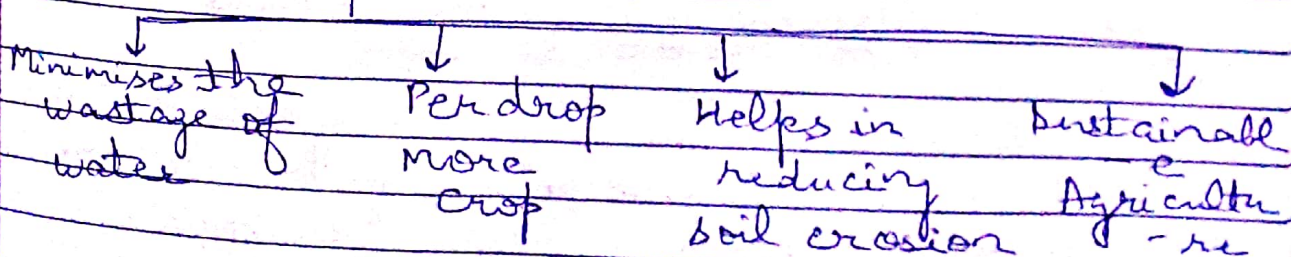 Minimises the
wastage of
water
Per drop
More
Crop
Helps in
reducing
soil erosion
Sustainabl
e
Agricultu
-re